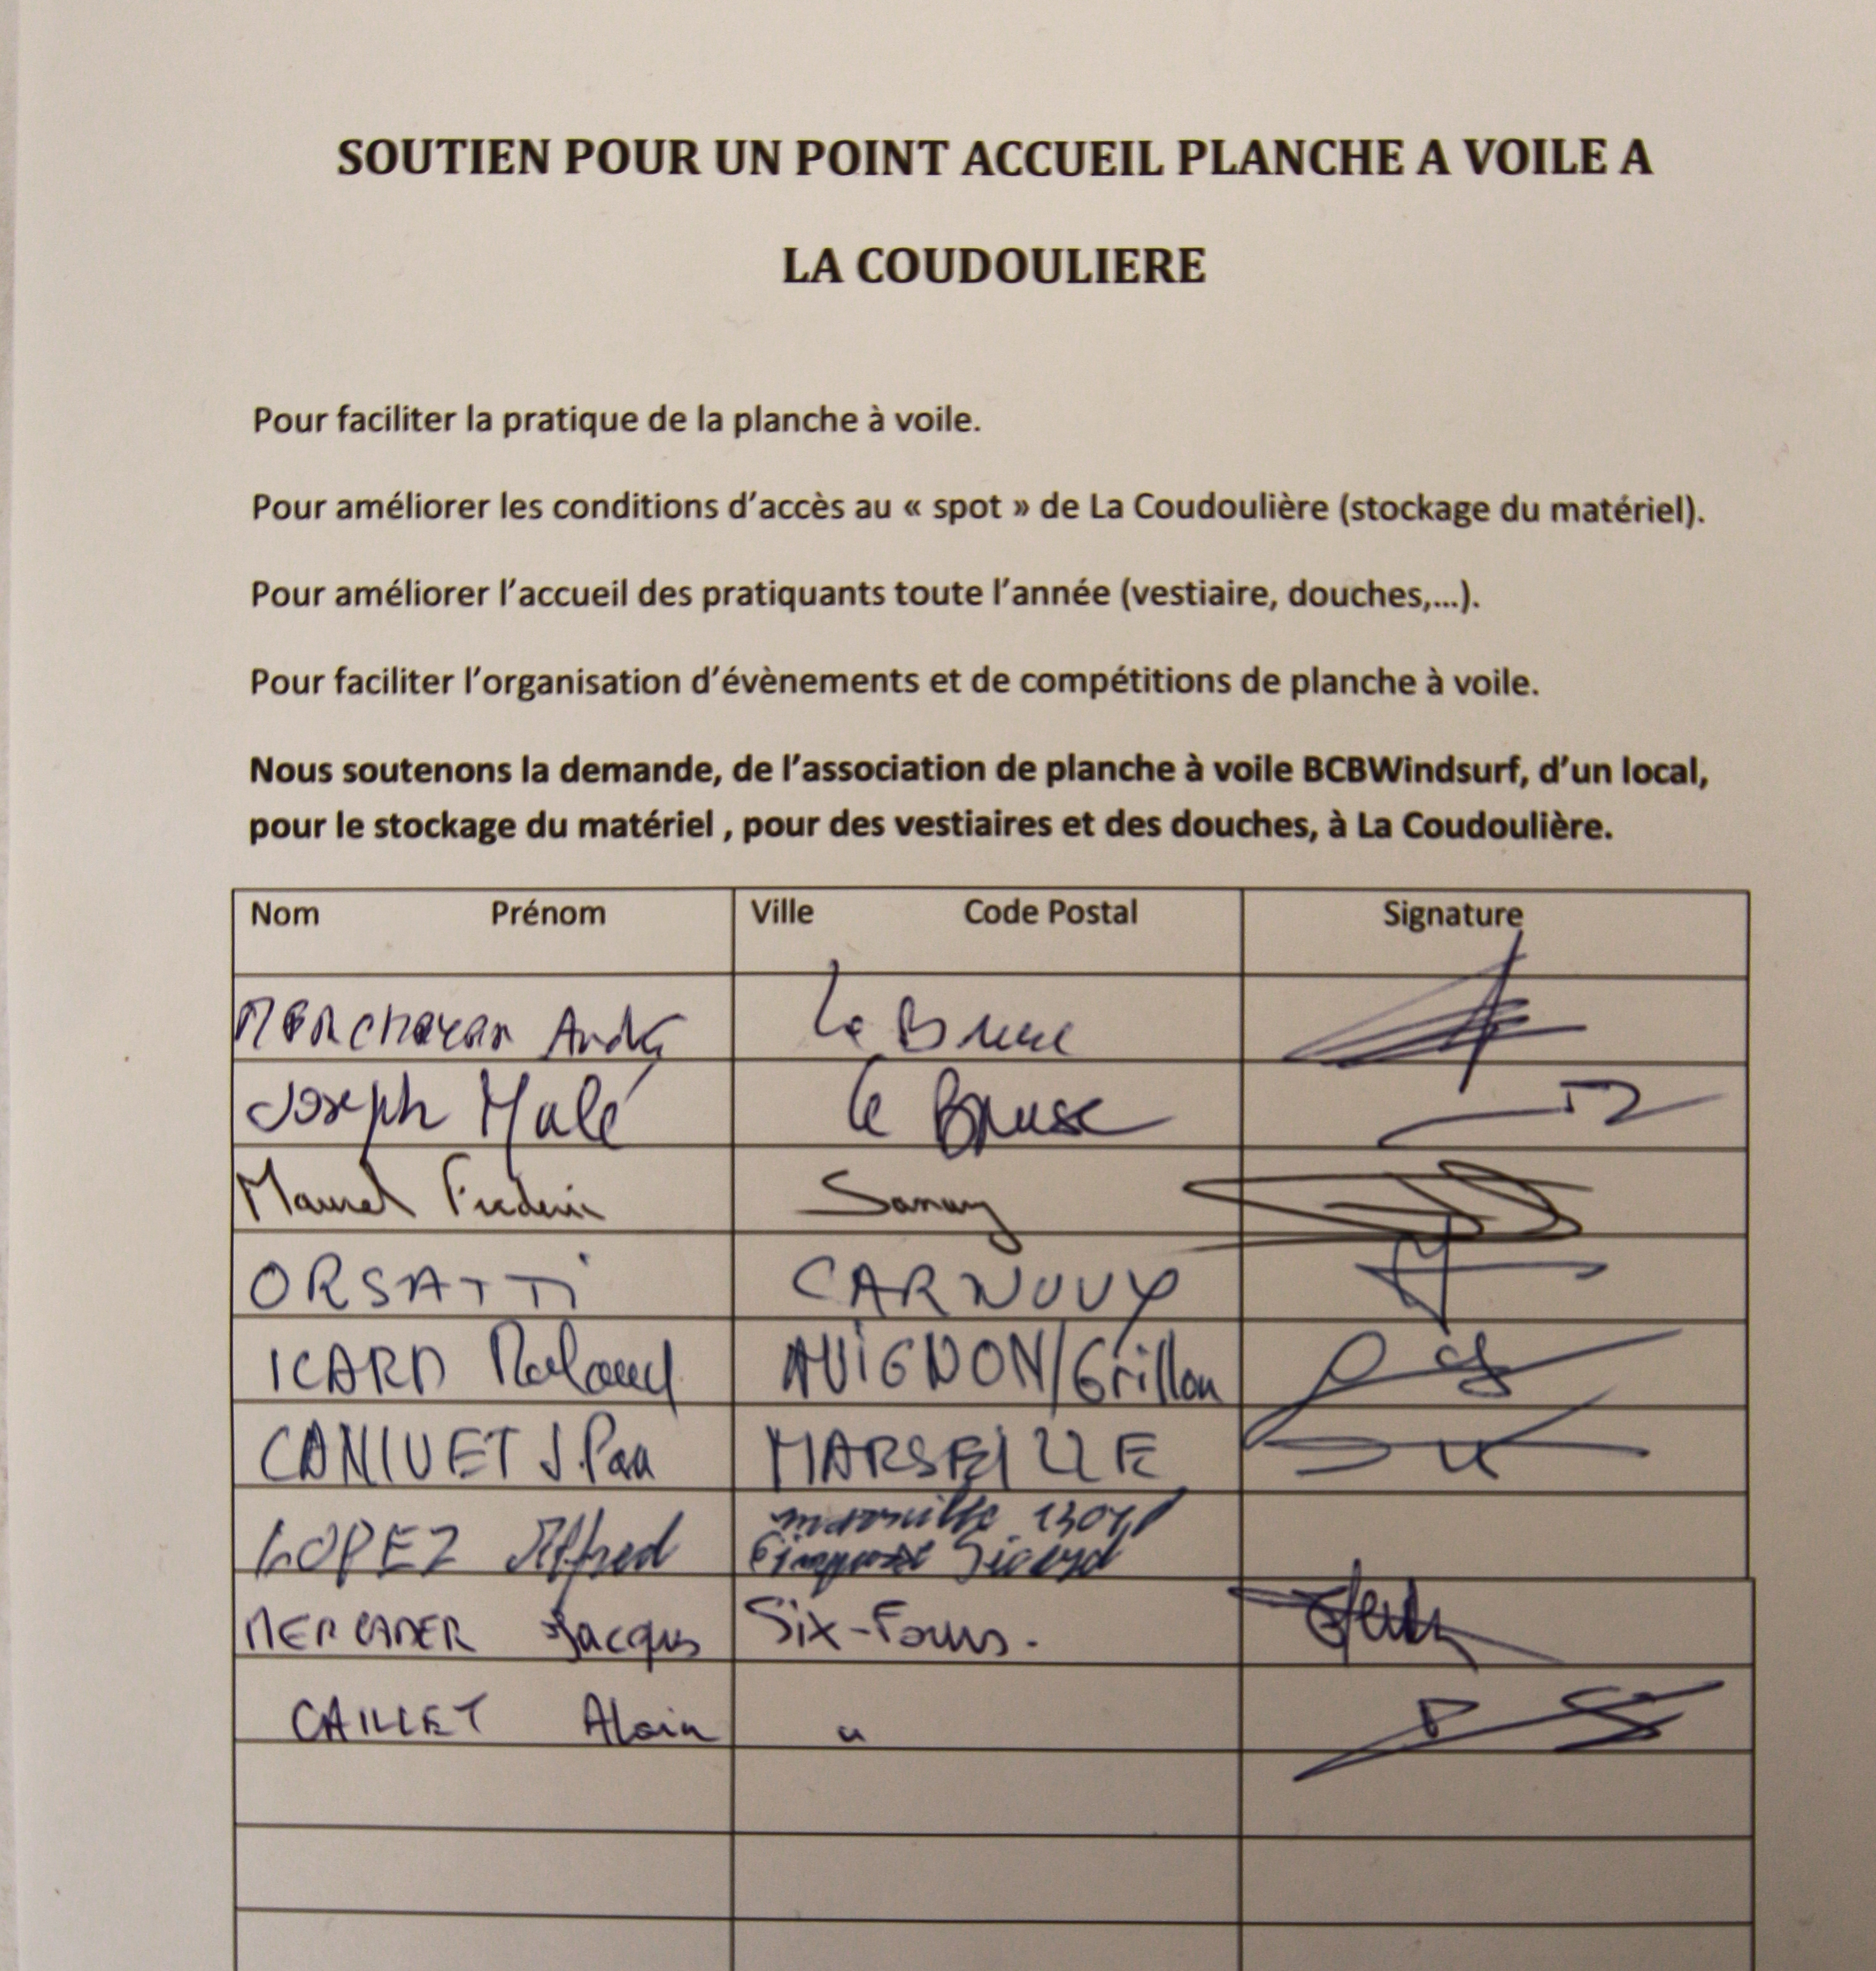 SOUTIEN POUR UN POINT ACCUEIL PLANCHE A VOILE A
LA COUDOULIERE
Pour faciliter la pratique de la planche à voile.
Pour améliorer les conditions d'accès au « spot » de La Coudoulière (stockage du matériel).
Pour améliorer l'accueil des pratiquants toute l'année (vestiaire, douches,...).
Pour faciliter l'organisation d'évènements et de compétitions de planche à voile.
Nous soutenons la demande, de l'association de planche à voile BCBWindsurf, d'un local,
pour le stockage du matériel , pour des vestiaires et des douches, à La Coudoulière.
Nom Prénom Ville Code Postal Signature
André Le Brusc
Joseph Malé Le Brusc
Maurel Frederic Sanary
ORSATTI CARNOUX
ICARD Roland AVIGNON/Grillon
CANIVET J.Pau MARSEILLE
LOPEZ Alfred marseille
impasse
MERCADER Jacques Six-Fours.
CAILLET Alain "